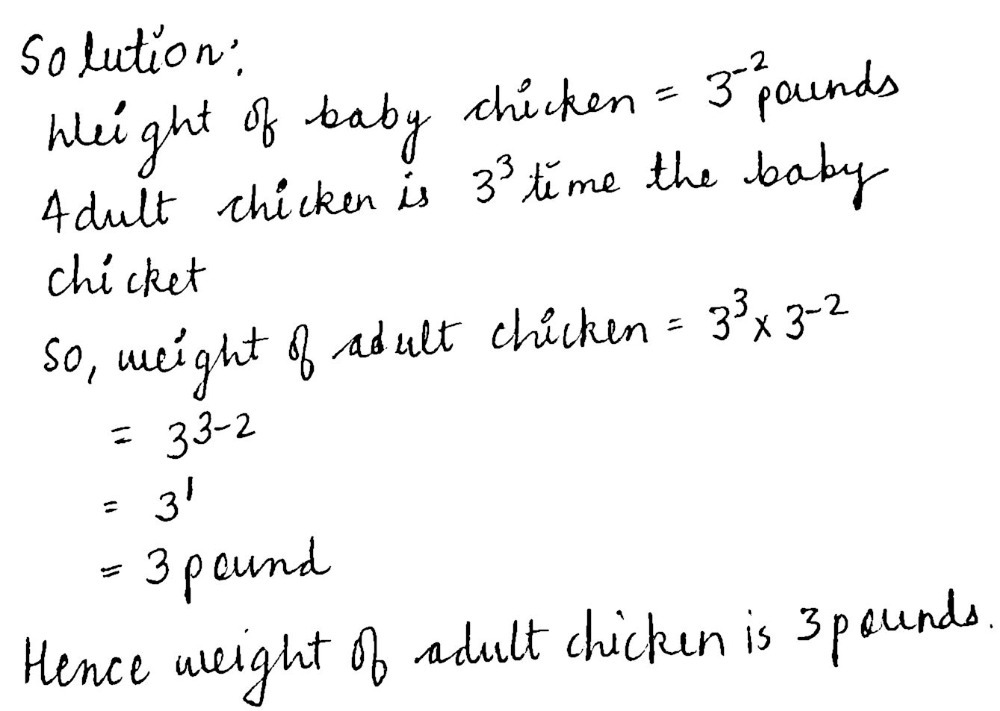 Solution:
Weight of baby chicken = 3⁻² pounds
Adult chicken is 3³ time the baby
chicket
So, weight of adult chicken = 3³ x 3⁻²
= 3³⁻²
= 3¹
= 3 pound
Hence weight of adult chicken is 3 pounds.